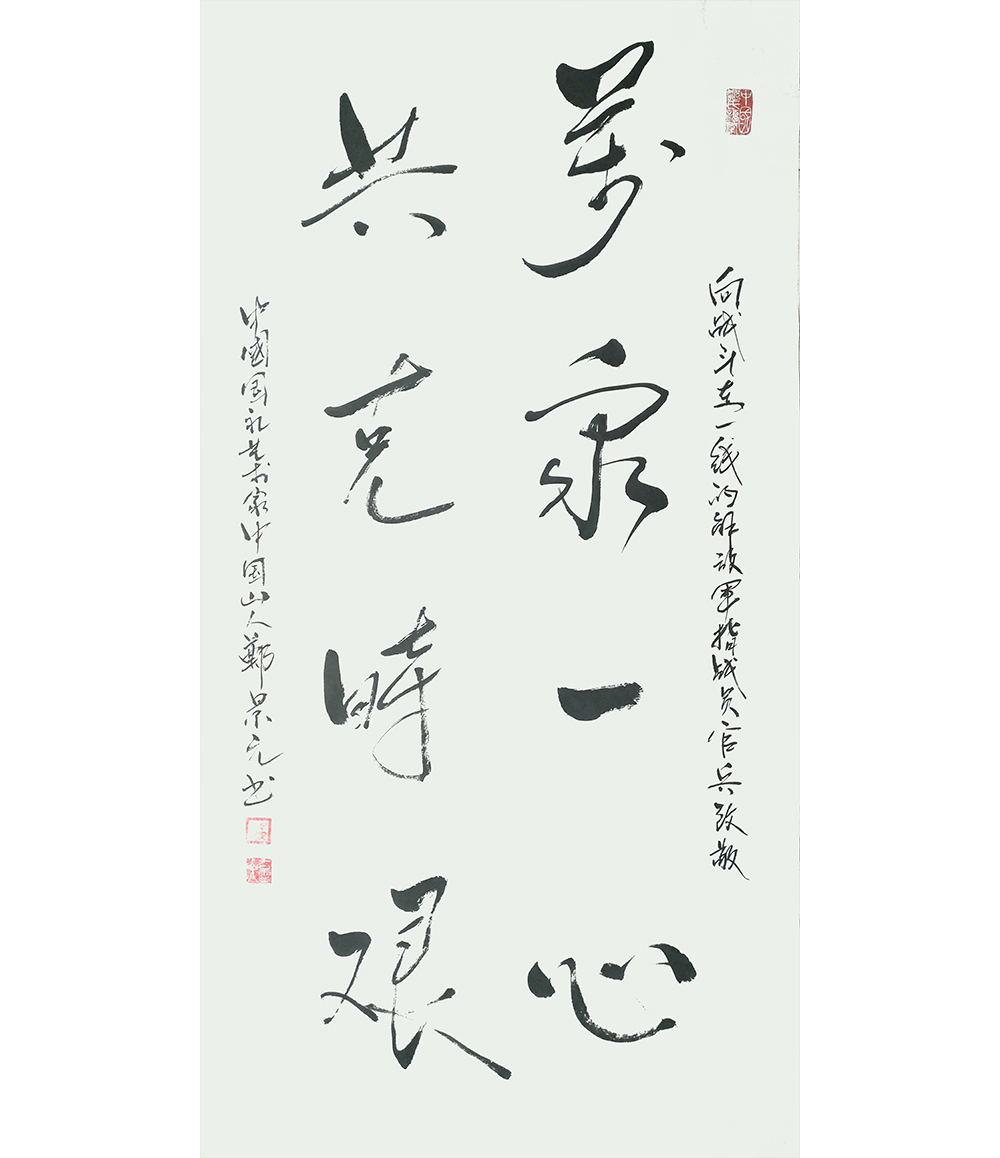 向战斗在一线的解放军指战员官兵致敬
萬衆一心
共克時艱
中國国礼艺术家中国山人鄭景元书